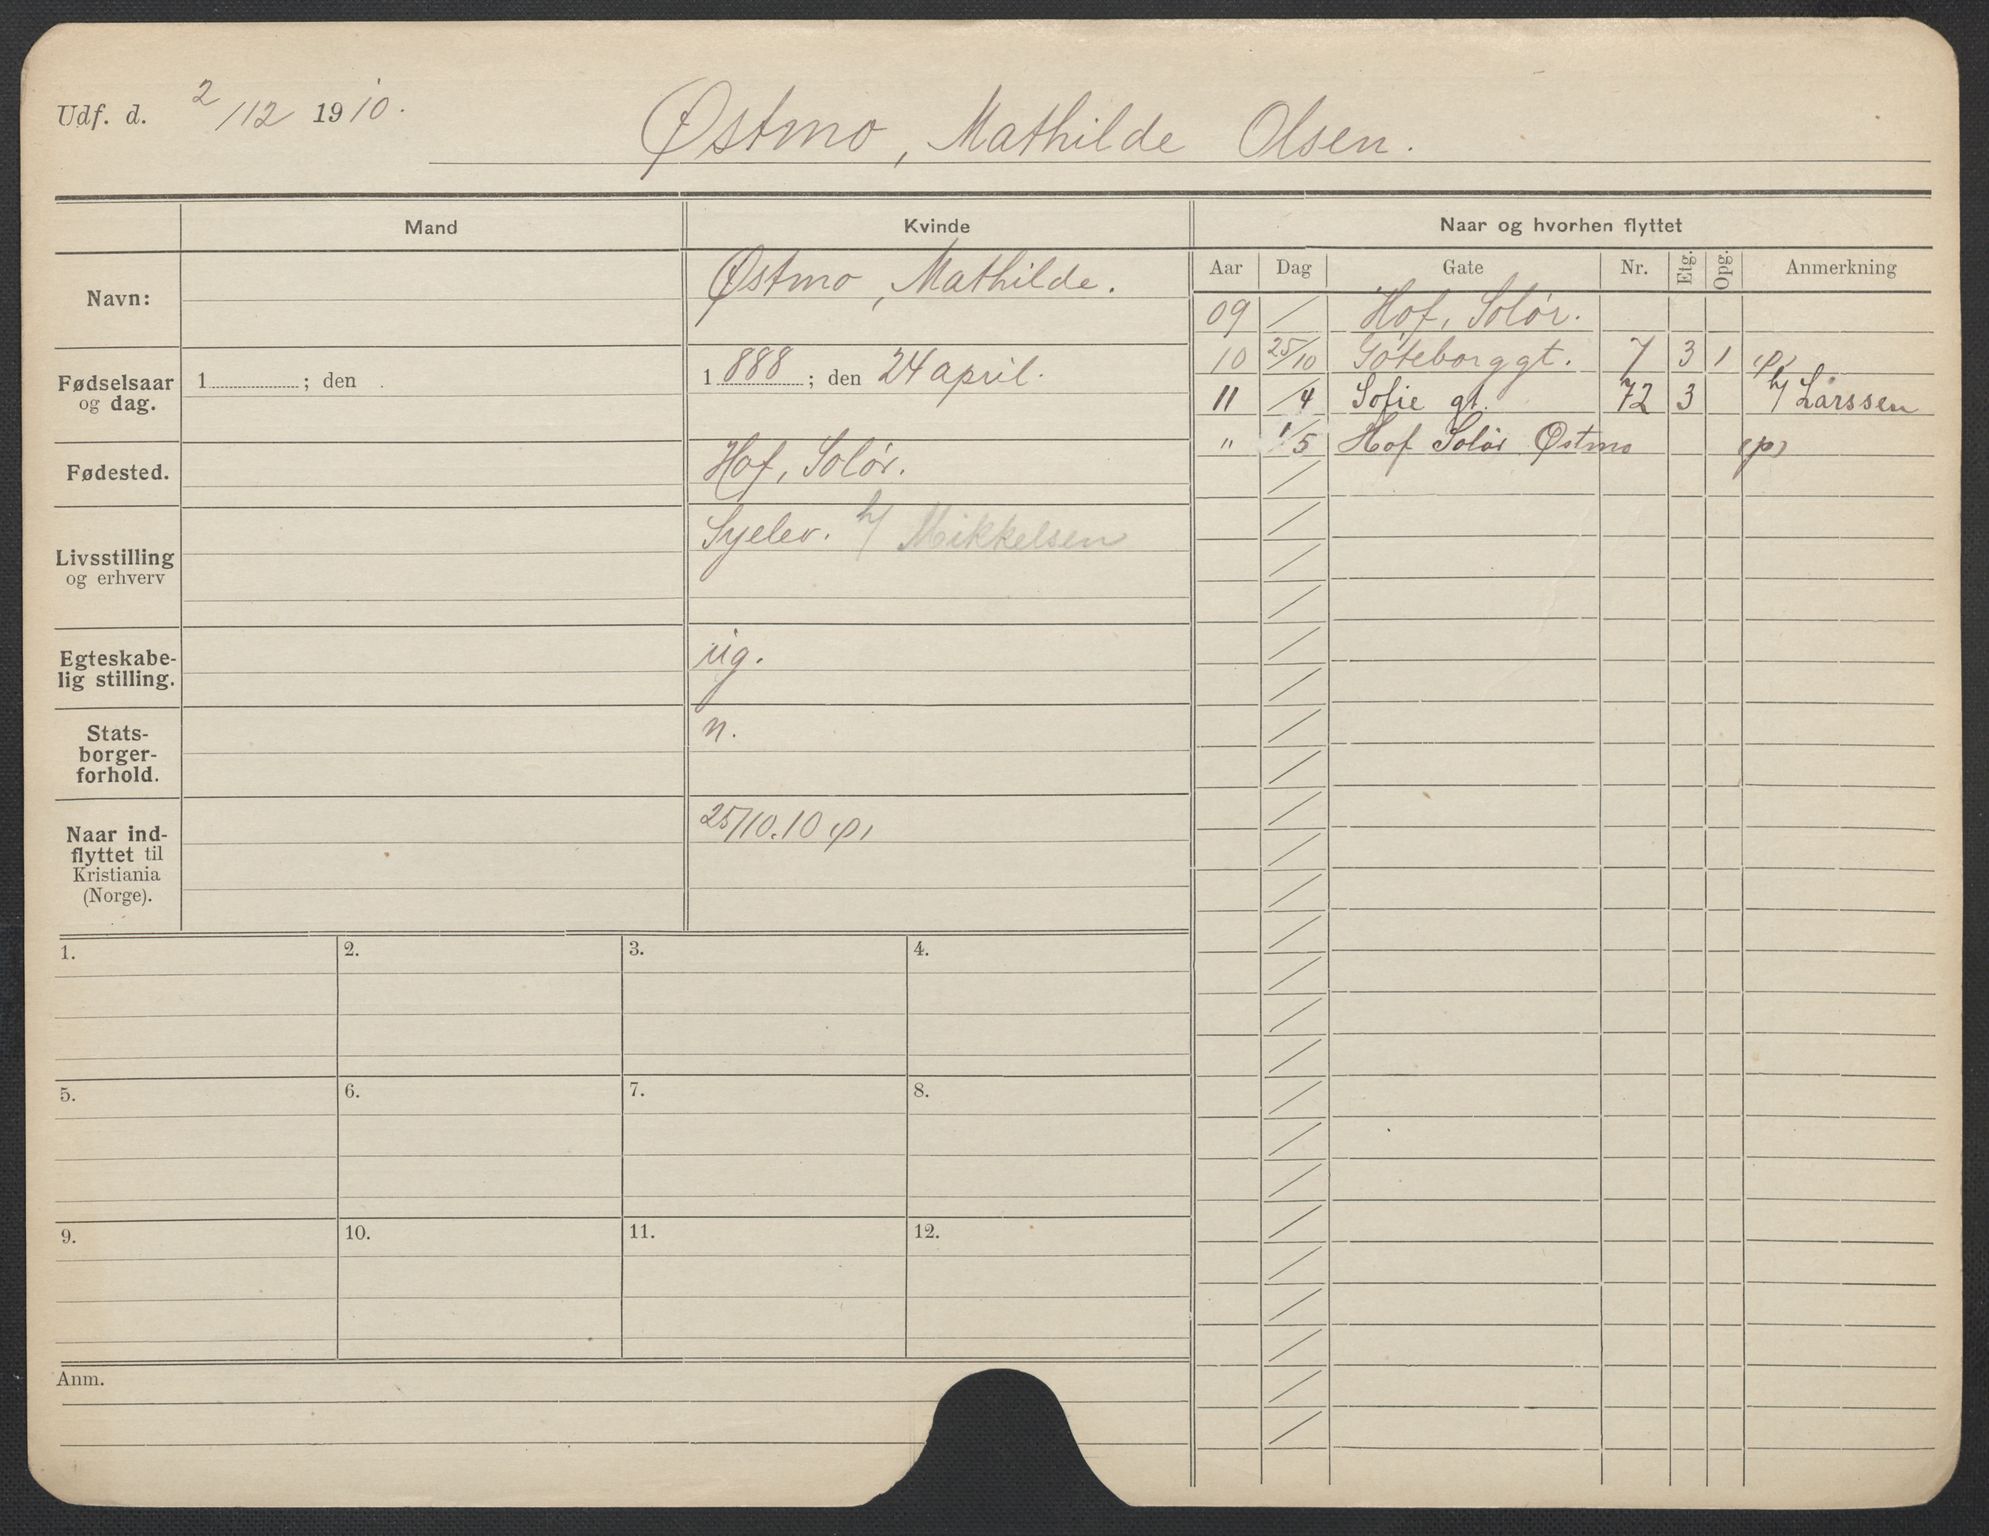 Udf. d. 2/12 1910.
Østmo, Mathilde Olsen.
Mand
Kvinde
Naar og hvorhen flyttet
Navn:
Østmo, Mathilde.
Fødselsaar og dag.
1 ; den
1888; den 24 april.
Fødested.
Hof, Solør.
Livsstilling og erhverv
Syelev. h/ Mikkelsen
Egteskabe-
lig stilling.
ug.
Stats-
borger-
forhold.
n.
Naar ind-
flyttet til
Kristiania
(Norge).
25/10.10 (p)
Aar Dag Gate Nr. Etg. Opg. Anmerkning
09 / Hof, Solør.
10 25/10 Gøteborggt. 7 3 1 (p)
11 /4 Sofie gt. 72 3 h/ Larssen
" 1/5 Hof Solør Østmo (p)
1. 2. 3. 4.
5. 6. 7. 8.
9. 10. 11. 12.
Anm.